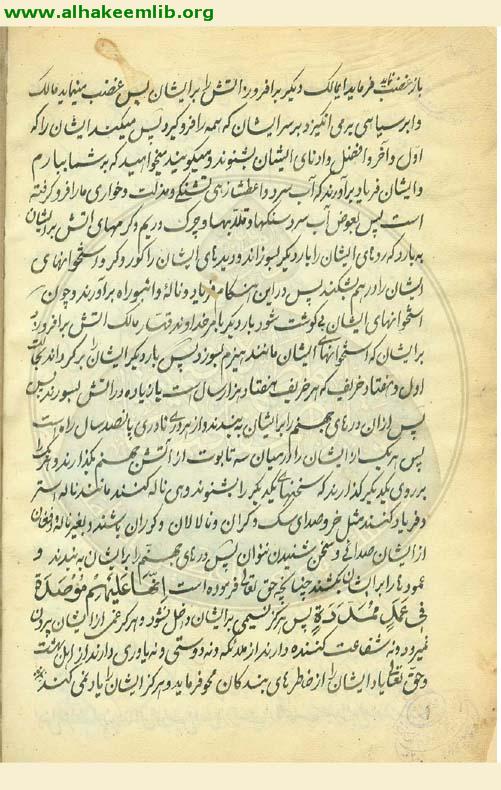 www.alhakeemlib.org
باز غضب فرماید ایمالک دیکر برافروز آتش را بر ایشان پس غضب مینماید مالک
و ابر سیاهی برمی انگیزد بر سر ایشان که همه را فرو کیرد پس میکند ایشان را که
اول و آخر و افضل و ادنای ایشان بشنوند و میکویند میخواهید که بر شما ببارم
و ایشان فریاد برآورند که آب سرد و اعطشاه تشنکی و مذلت و خواری ما را فرو کرفته
است پس بعوض آب سرد سنکها و چرک و کرمهای آتش بر ایشان
ببارد که روهای ایشان را بار دیکر بسوزاند و دیدهای ایشان را کور کرد و استخوانهای
ایشان را درهم شکند پس در این هنکام فریاد و ناله و اثبوراه برآورند و چون
استخوانهای ایشان بی کوشت شود بار دیکر بامر خداوند قهار مالک آتش برافروزد
بر ایشان که استخوانهای ایشان مانند هیزم بسوزد پس بار دیکر ایشان را برکرداند بحالت
اول و هفتاد خریف که هر خریف هفتاد هزار سال است یا زیاده در آتش بسوزند پس
پس از آن درهای جهنم را بر ایشان ببندند و از هر دری تا دری پانصد سال راه است
پس هر یک از ایشان را در میان سه تابوت از آتش جهنم بکذارند و هر یک را
بر روی یکدیکر کذارند که سخنهای یکدیکر را بشنوند و هی ناله کنند مانند ناله استر
و فریاد کنند مثل خر و صدای سک و کران و لالان و کوران باشند و بغیر ناله و افغان
از ایشان صدائی و سخن شنیدن نتوان پس درهای جهنم را بر ایشان ببندند و
عمودها را بر ایشان بکشند چنانچه حق تعالی فرموده است اِنَّهَا عَلَیْهِمْ مُؤْصَدَة
فِی عَمَدٍ مُمَدَّدَةٍ پس هرکز نسیمی بر ایشان داخل نشود و هرکز غمی از ایشان بیرون
نمیرود و نه شفاعت کننده دارند از ملائکه و نه دوستی و نه یاوری دارند از اهل بهشت
و حق تعالی یاد ایشان را از خاطرهای بندکان محو فرماید و هرکز ایشان را یاد نمی کنند